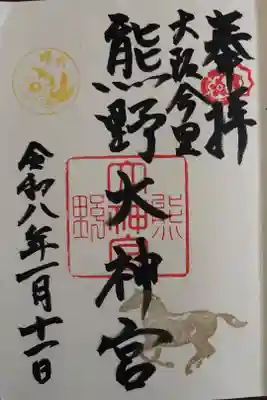 奉拝
大阪今里
熊野大神宮
令和八年一月十一日